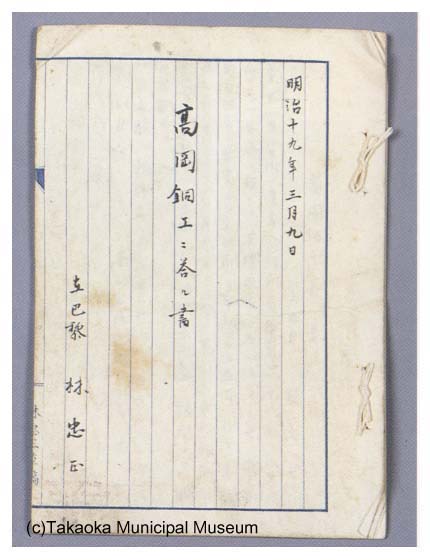 明治十九年三月九日
高岡銅工ニ答フル書
在巴黎 林忠正
(c)Takaoka Municipal Museum